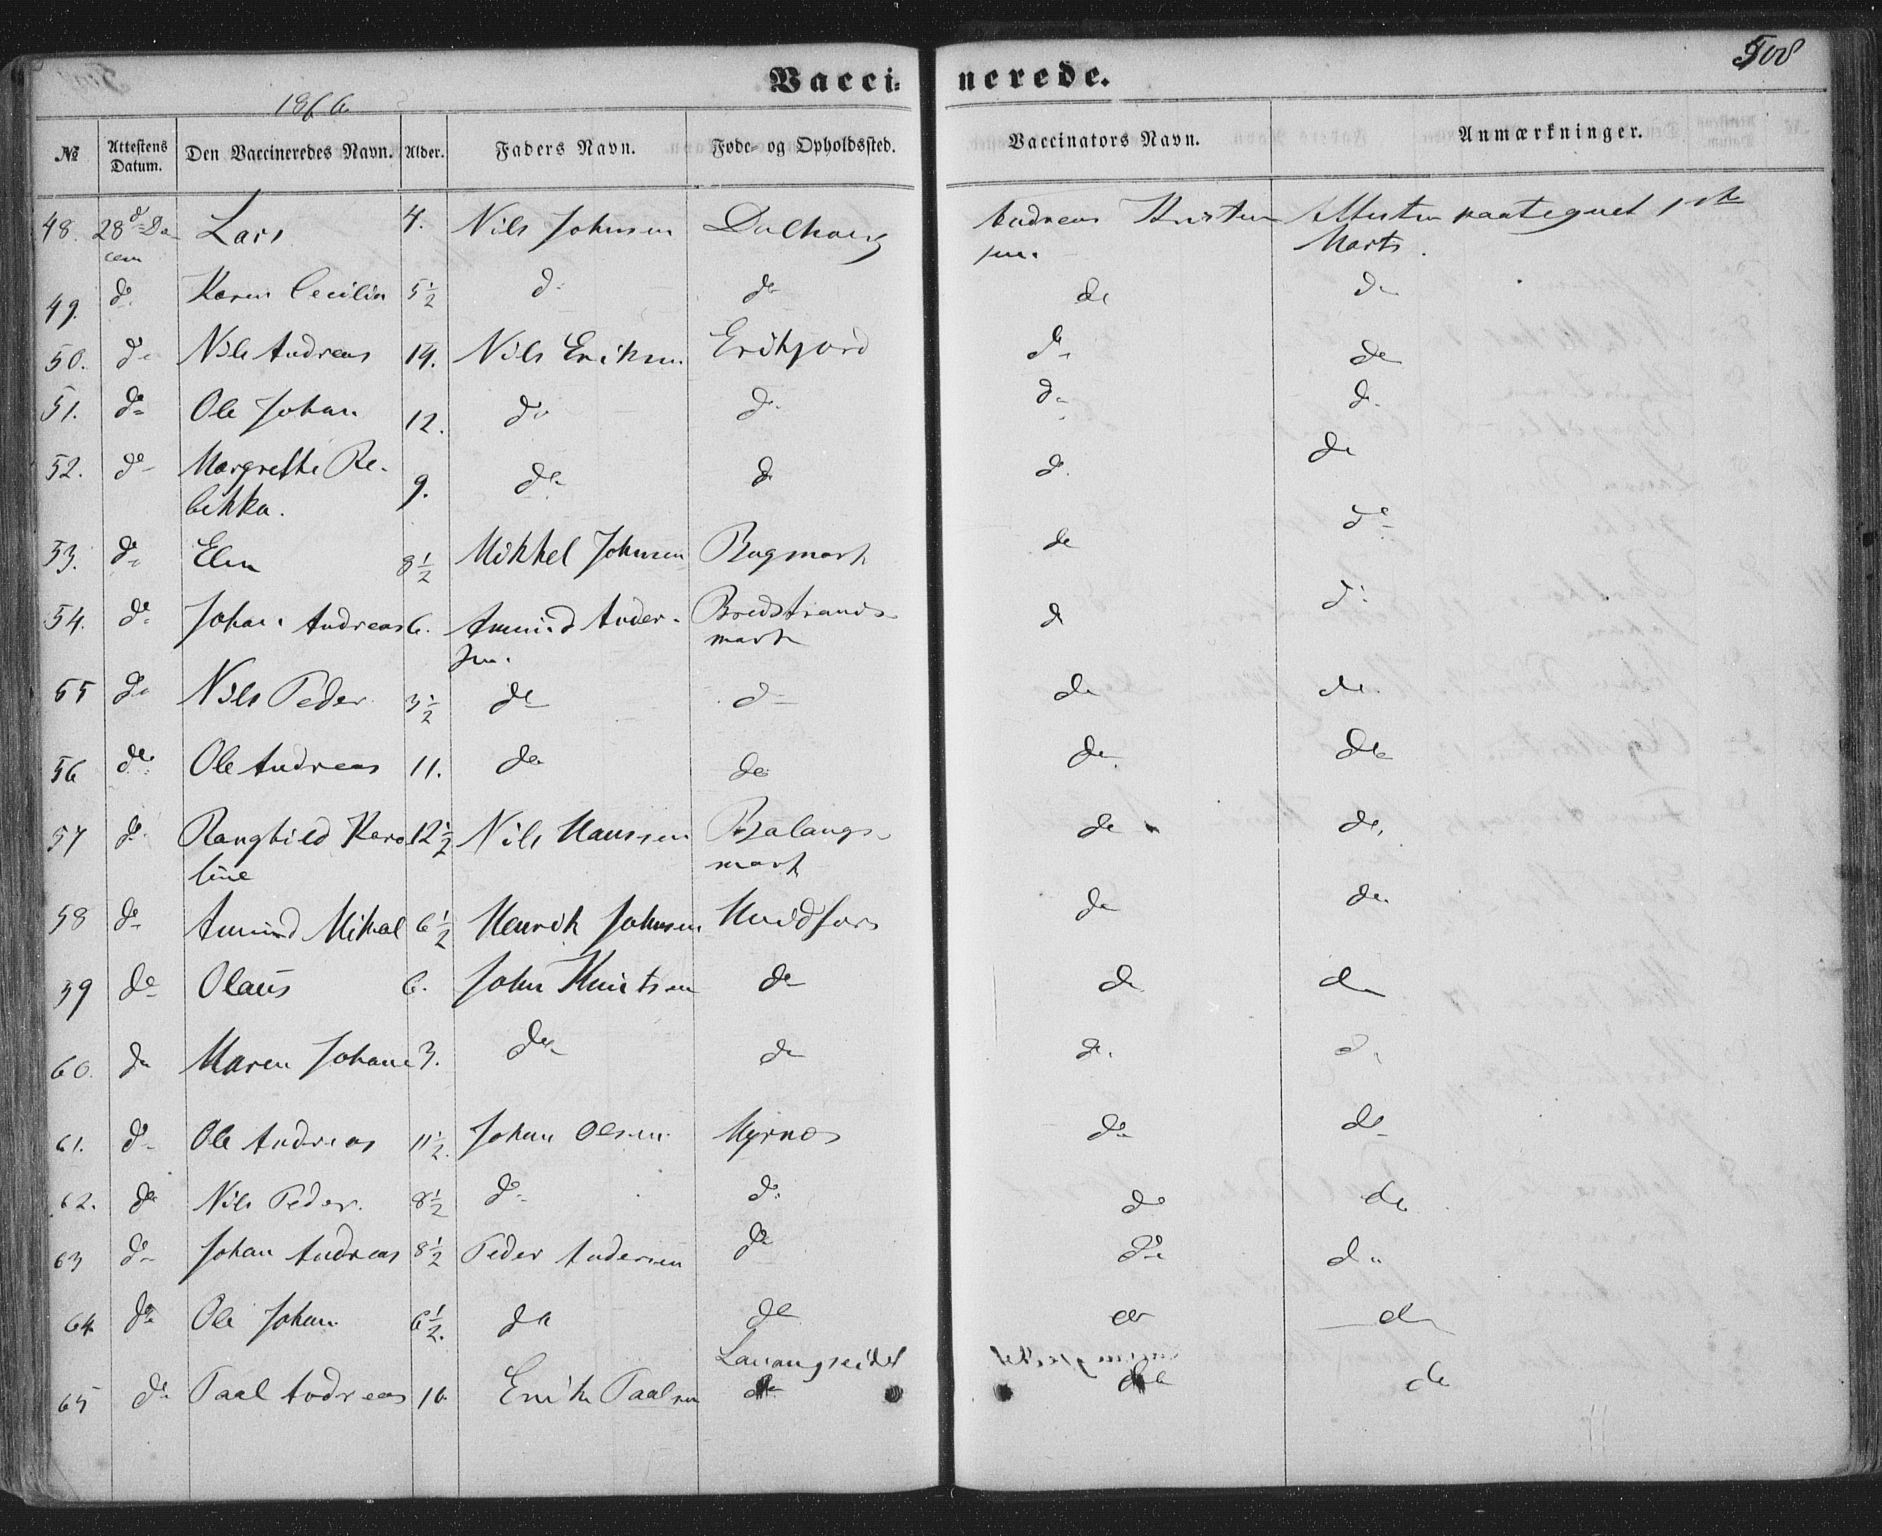 508
Vaccinerede.
1866.
№ Attestens Datum. Den Vaccineredes Navn. Alder. Faders Navn. Føde- og Opholdssted. Vaccinators Navn. Anmærkninger.
48. 28de De Lars 4. Nils Johnsen Andreas Kristen Attesten paategnet 1ste
cem sen. Marts.
49. do Karen Cecilia 5½ do do do do
50. do Nils Andreas 14. Nils Eriksen Erikjord do do
51. do Ole Johan 12. do do do do
52. do Margrethe Re- 9. do do do do
bekka.
53. do Elen 8½ Mikkel Johnsen Bogmark do do
54. do Johan Andreas 6. Amund Ander- Bredstrands- do do
sen. mark
55 do Nils Peder 3½ do do do do
56 do Ole Andreas 11. do do do do
57 do Ranghild Karo 12½ Nils Hanssen Balangs- do do
line mark
58 do Amund Mikal 6½ Henrik Johnsen Hvidfors do do
59 do Olaus 6. John Knutsen do do do
60. do Maren Johane 3. do do do do
61. do Ole Andreas 11½. Johan Olsen Myrnes do do
62. do Nils Peder. 8½ do do do do
63 do Johan Andreas 8½ Peder Andersen do do do
64 do Ole Johan 6½. do do do do
Lavangseidet
65 do Paal Andreas 10 Erik Paalsen do do do